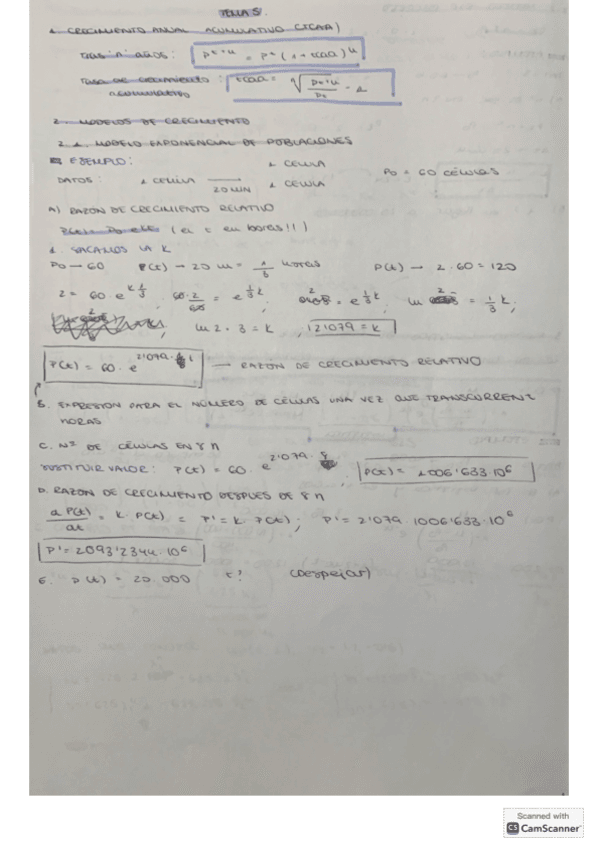 TEMA 5.
1. CRECIMIENTO ANUAL ACUMULATIVO (TCAA)
TRAS "n" AÑOS: P^{t+n} = P^t (1 + tcaa)^n
TASA DE CRECIMIENTO ACUMULATIVO : tcaa = \sqrt{\frac{P^{t+n}}{P_t}} - 1
2. MODELOS DE CRECIMIENTO
2.1. MODELO EXPONENCIAL DE POBLACIONES
EJEMPLO: 1 CÉLULA
DATOS: 1 CÉLULA → 20 MIN 1 CÉLULA P0 = 60 CÉLULAS
A) RAZÓN DE CRECIMIENTO RELATIVO
(el t en horas!!)
1. SACAMOS LA K
P0 → 60 P(t) → 20 m = 1/3 horas P(t) → 2·60 = 120
2 = 60·e^{k 1/3} ; \frac{60·2}{60} = e^{1/3 k} ; 2 = e^{1/3 k} ; ln 2 = 1/3 k ;
ln 2 · 3 = k , 2'079 = k
P(t) = 60 · e^{2'079·t} → RAZÓN DE CRECIMIENTO RELATIVO
B. EXPRESIÓN PARA EL NÚMERO DE CÉLULAS UNA VEZ QUE TRANSCURREN t
HORAS
C. Nº DE CÉLULAS EN 8 h
SUSTITUIR VALOR: P(t) = 60 · e^{2'079·8} ; P(t) = 1006'633·10^6
D. RAZÓN DE CRECIMIENTO DESPUÉS DE 8 h
\frac{d P(t)}{dt} = k · P(t) = P' = k · P(t) ; P' = 2'079 · 1006'633 · 10^6
P' = 2093'2344 · 10^6
E. P(t) = 20.000 t? (despejar)
Scanned with
CS CamScanner